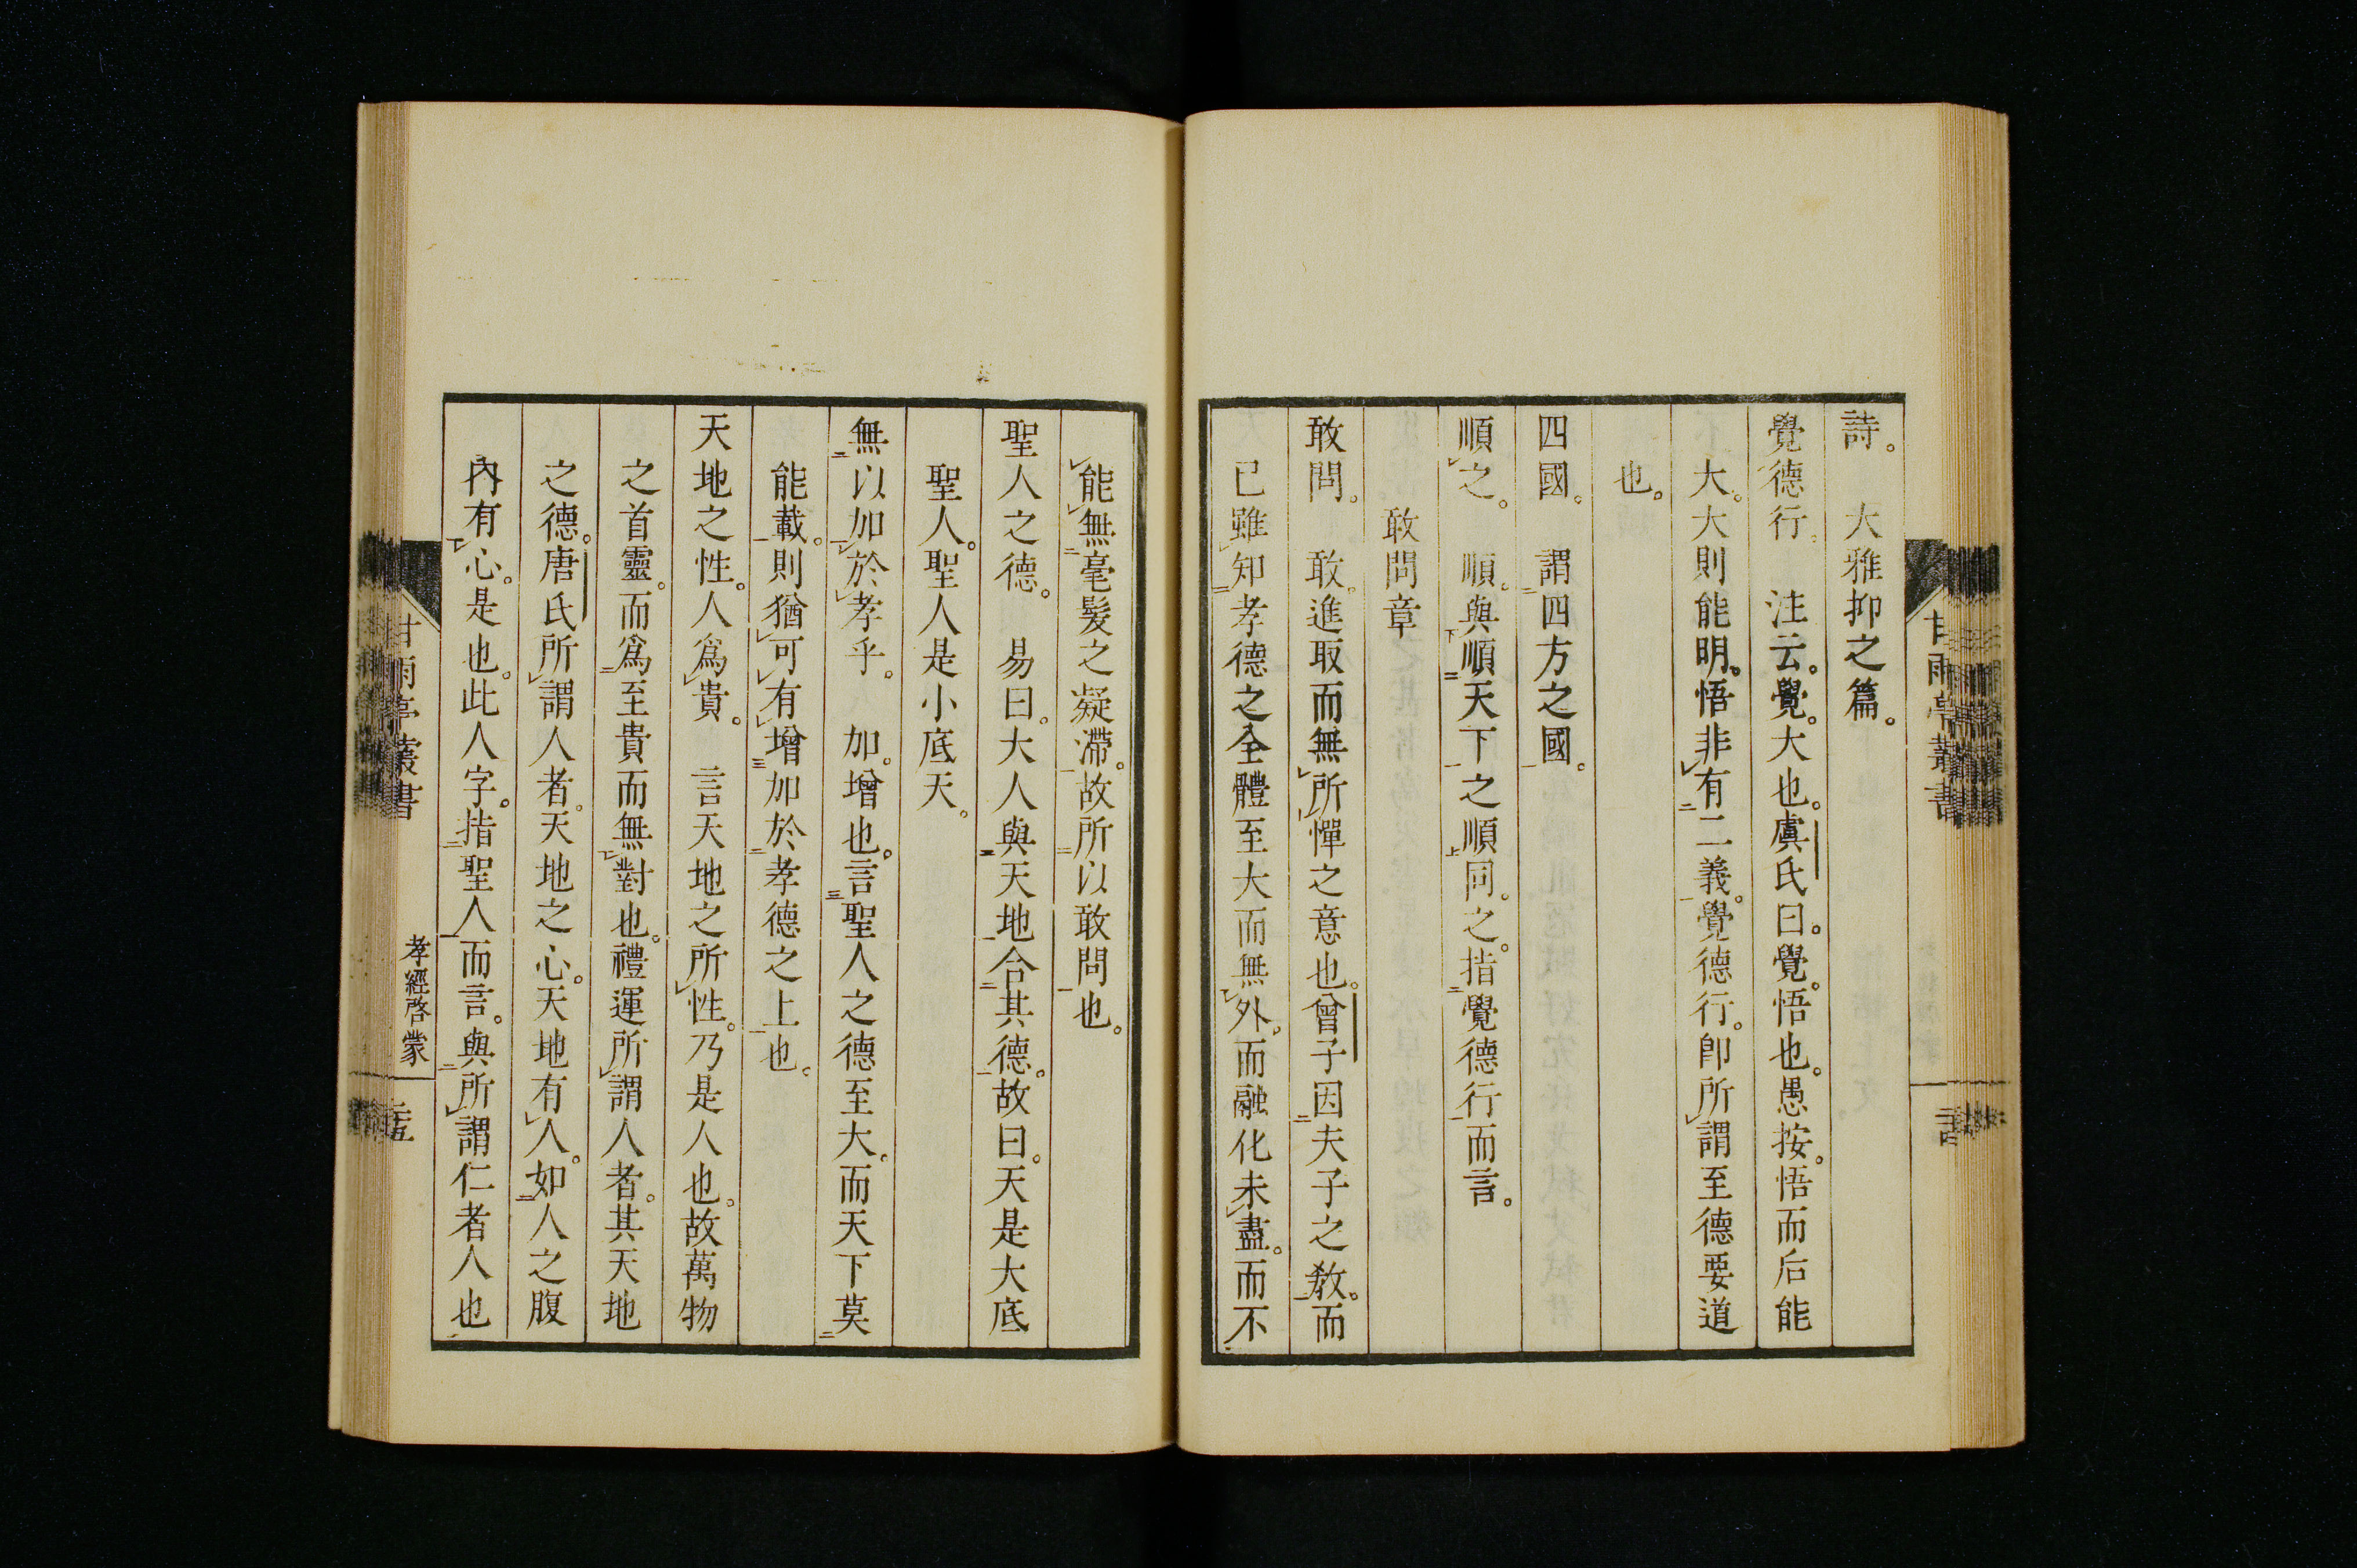 詩。　大雅抑之篇。
覺德行　注云。覺。大也。虞氏曰。覺。悟也。愚按。悟而后能
大。大則能明。悟非有二義。覺德行。卽所謂至德要道
也。
四國。　謂四方之國。
順之。　順。與順天下之順同。之。指覺德行而言。
敢問章
敢問。　敢。進取而無所憚之意也。曾子因夫子之敎。而
已雖知孝德之全體至大而無外。而融化未盡。而不
能無毫髮之凝滯。故所以敢問也。
聖人之德。　易曰。大人與天地合其德。故曰。天是大底
聖人。聖人是小底天。
無以加於孝乎。　加。增也。言聖人之德至大。而天下莫
能載。則猶可有增加於孝德之上也。
天地之性。人爲貴。　言天地之所性。乃是人也。故萬物
之首靈。而爲至貴而無對也。禮運所謂人者。其天地
之德。唐氏所謂人者。天地之心。天地有人。如人之腹
內有心。是也。此人字。指聖人而言。與所謂仁者人也
甘雨亭叢書
孝經啓蒙
甘雨亭叢書